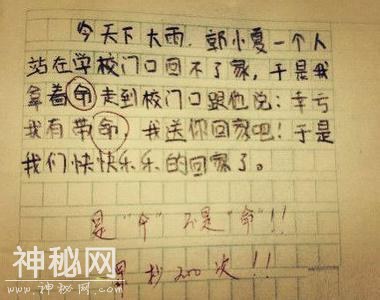 今天下大雨，郭小夏一个人
站在学校门口回不了家，于是我
拿着命走到校门口跟他说：幸亏
我有带命，我送你回家吧！于是
我们快快乐乐的回家了。
是“伞”不是“命”!!
罚抄200次!!
神秘网
www.shenmiwang.com